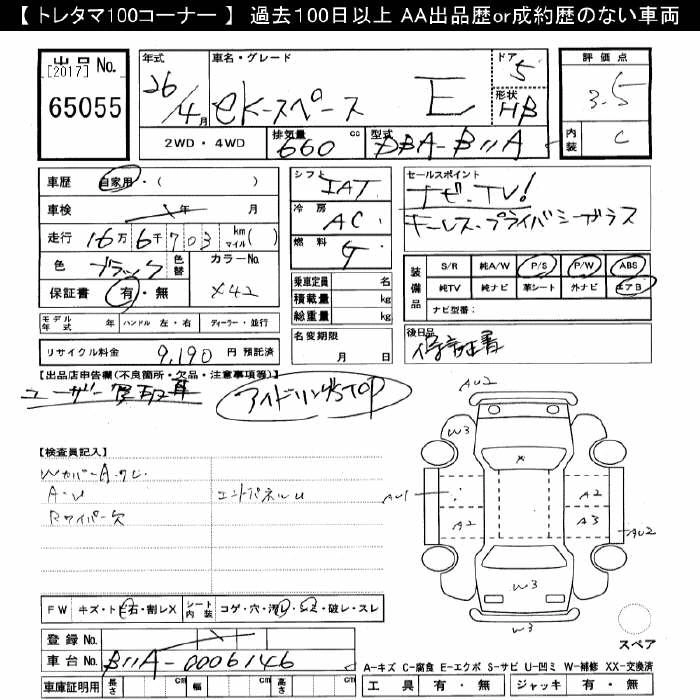 【 トレタマ100コーナー 】 過去100日以上 AA出品歴or成約歴のない車両
出品 No.
[2017]
65055
年式 26/4月
車名・グレード eKースペース E
ドア 5
形状 HB
評価点 3.5
内装 C
2WD・4WD
排気量 660 cc
型式 DBA-B11A
車歴 自家用・( )
車検 年 月
走行 16万6千703 km マイル( )
色 ブラック 色替
カラーNo. X42
保証書 有・無
モデル年式 年 ハンドル 左・右 ディーラー・並行
リサイクル料金 9,190 円 預託済
シフト IAT
冷房 AC
燃料 G
乗車定員 名
積載量 kg
総重量 kg
名変期限
月 日
セールスポイント
ナビ・TV!
キーレス・プライバシーガラス
装備品
S/R 純A/W P/S P/W ABS
純TV 純ナビ 革シート 外ナビ エアB
ナビ型番:
後日品
保証書
【出品店申告欄(不良箇所・欠品・注意事項等)】
ユーザー買取車 アイドリングSTOP
【検査員記入】
WカバーAワレ
A・U エンドパネルU
Rワイパー欠
AU2
W3
X
AU1
A2
A2
A3
AU2
W3
W3
FW キズ・トビ石・割レX シート内装 コゲ・穴・汚レ・シミ・破レ・スレ
スペア
登録 No.
車台 No. B11A-0006146
車庫証明用 長さ cm 幅 cm 高さ cm
A-キズ C-腐食 E-エクボ S-サビ U-凹ミ W-補修 XX-交換済
工具 有・無 ジャッキ 有・無